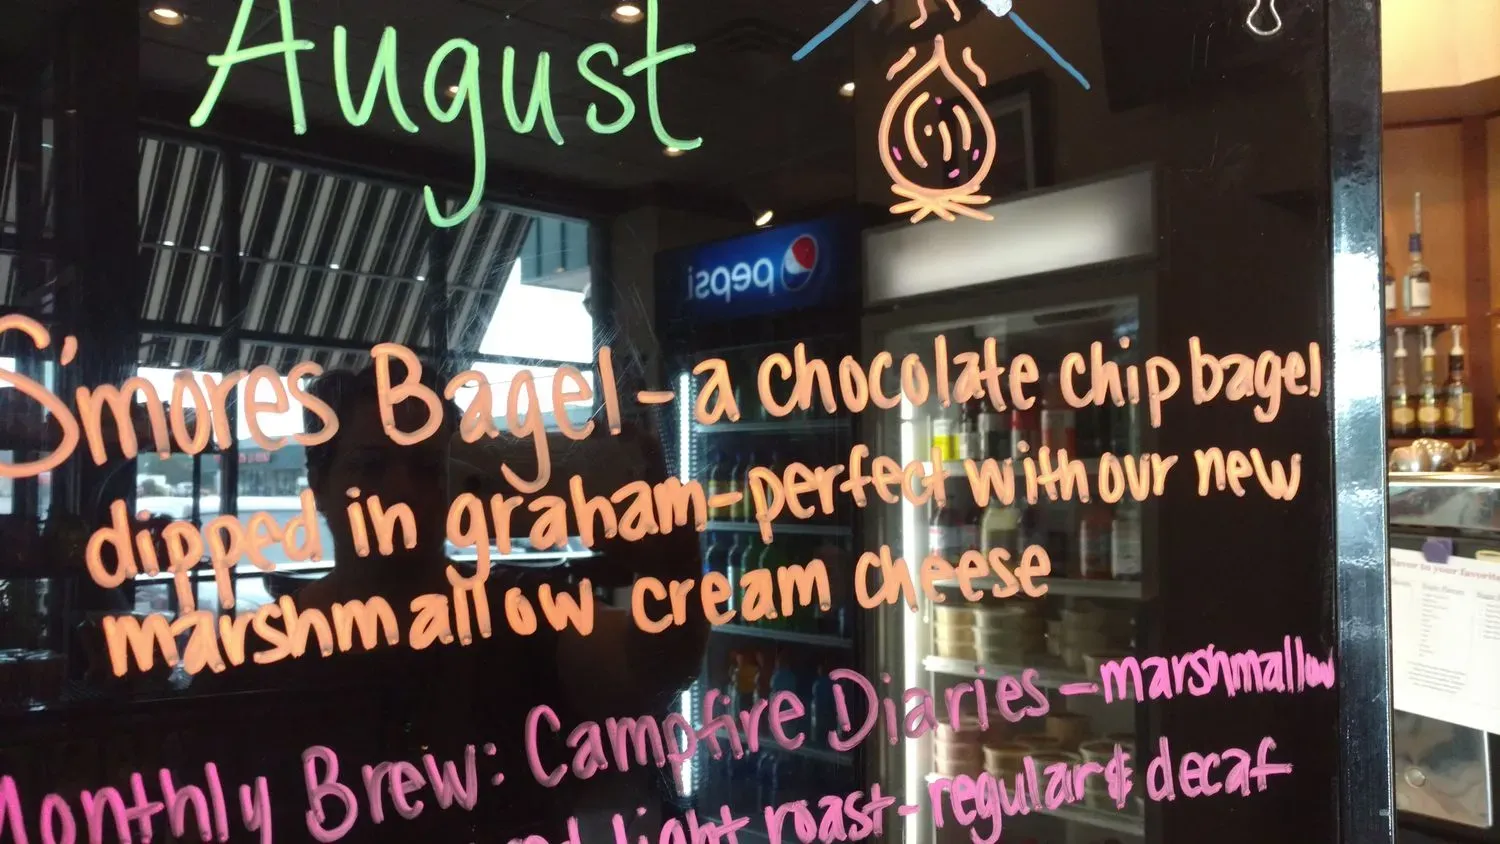 August
pepsi
S'mores Bagel - a chocolate chip bagel
dipped in graham - perfect with our new
marshmallow cream cheese
Monthly Brew: Campfire Diaries - marshmallow
light roast - regular & decaf